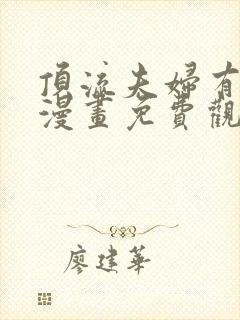 頂流夫婦有
漫畫免費觀
廖建華